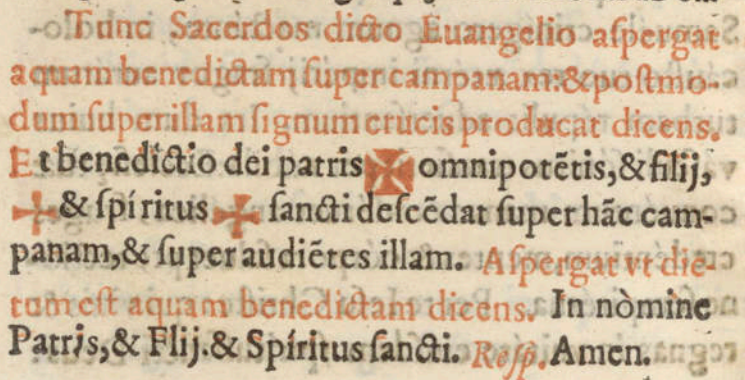 Tunc Sacerdos dicto Euangelio aſpergat
aquam benedictam ſuper campanam:&poſtmo-
dum ſuper illam ſignum crucis producat dicens.
Et benedíctio dei patris ✠ omnipotẽtis,& filij,
✠ & ſpíritus ✠ ſancti deſcẽdat ſuper hãc cam-
panam,& ſuper audiẽtes illam. Aſpergat vt dic-
tum eſt aquam benedictam dicens. In nòmine
Patris,& Flij.& Spíritus ſancti. Reſp. Amen.